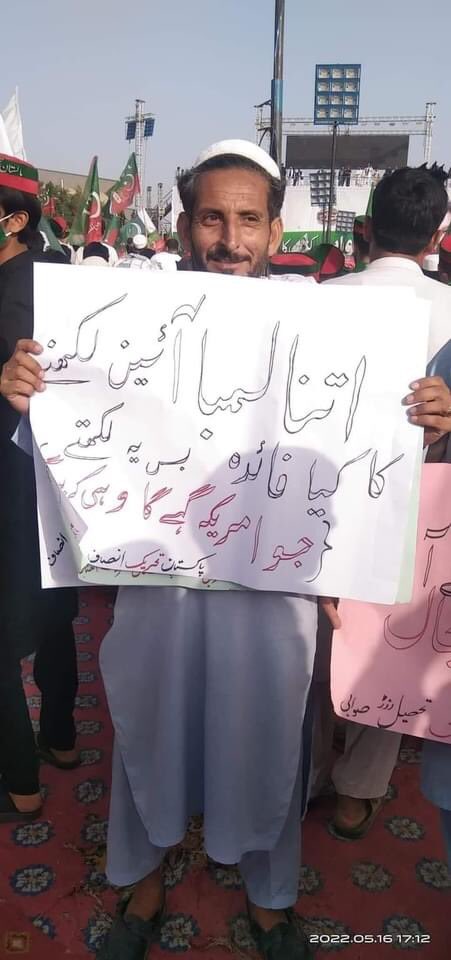 اتنا لمبا آئین لکھنے
کا کیا فائدہ بس یہ لکھتے
جو امریکہ کہے گا وہی
پاکستان تحریک انصاف
انصاف
پاکستان
آ
تحصیل رزڑ صوابی
2022.05.16 17:12